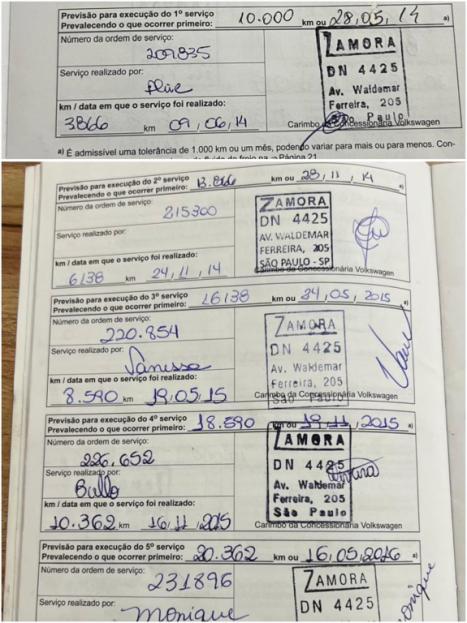 Previsão para execução do 1º serviço
Prevalecendo o que ocorrer primeiro: 10.000 km ou 28,05,14 a)
Número da ordem de serviço:
209835
Serviço realizado por:
km / data em que o serviço foi realizado:
3866 km 09,06,14
ZAMORA
DN 4425
Av. Waldemar
Ferreira, 205
São Paulo
Carimbo da Concessionária Volkswagen
a) É admissível uma tolerância de 1.000 km ou um mês, podendo variar para mais ou para menos. Con-
Página 21
Previsão para execução do 2º serviço
Prevalecendo o que ocorrer primeiro: 13.866 km ou 28,11,14 a)
Número da ordem de serviço:
215300
Serviço realizado por:
km / data em que o serviço foi realizado:
6138 km 24,11,14
ZAMORA
DN 4425
AV. WALDEMAR
FERREIRA, 205
SÃO PAULO - SP
Carimbo da Concessionária Volkswagen
Previsão para execução do 3º serviço
Prevalecendo o que ocorrer primeiro: 16138 km ou 24,05,2015 a)
Número da ordem de serviço:
220.854
Serviço realizado por:
Vanessa
km / data em que o serviço foi realizado:
8.590 km 19.05.15
ZAMORA
DN 4425
Av. Waldemar
Ferreira, 205
São Paulo
Carimbo da Concessionária Volkswagen
Previsão para execução do 4º serviço
Prevalecendo o que ocorrer primeiro: 18.590 km ou 19,11,2015 a)
Número da ordem de serviço:
226.652
Serviço realizado por:
km / data em que o serviço foi realizado:
10.362 km 16,11,2015
ZAMORA
DN 4425
Av. Waldemar
Ferreira, 205
São Paulo
Carimbo da Concessionária Volkswagen
Previsão para execução do 5º serviço
Prevalecendo o que ocorrer primeiro: 20.362 km ou 16,05,2016 a)
Número da ordem de serviço:
231896
Serviço realizado por:
Monique
ZAMORA
DN 4425
Monique